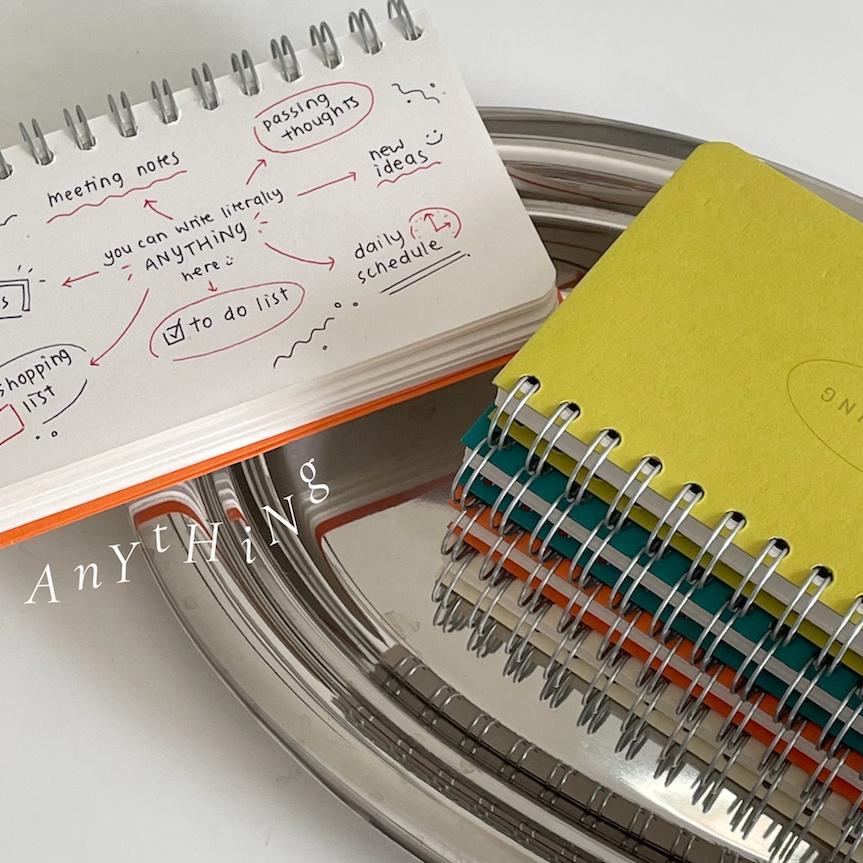 passing
thoughts
meeting notes
new
ideas
you can write literally
ANYTHiNG
here
daily
schedule
to do list
shopping
list
AnYtHiNg